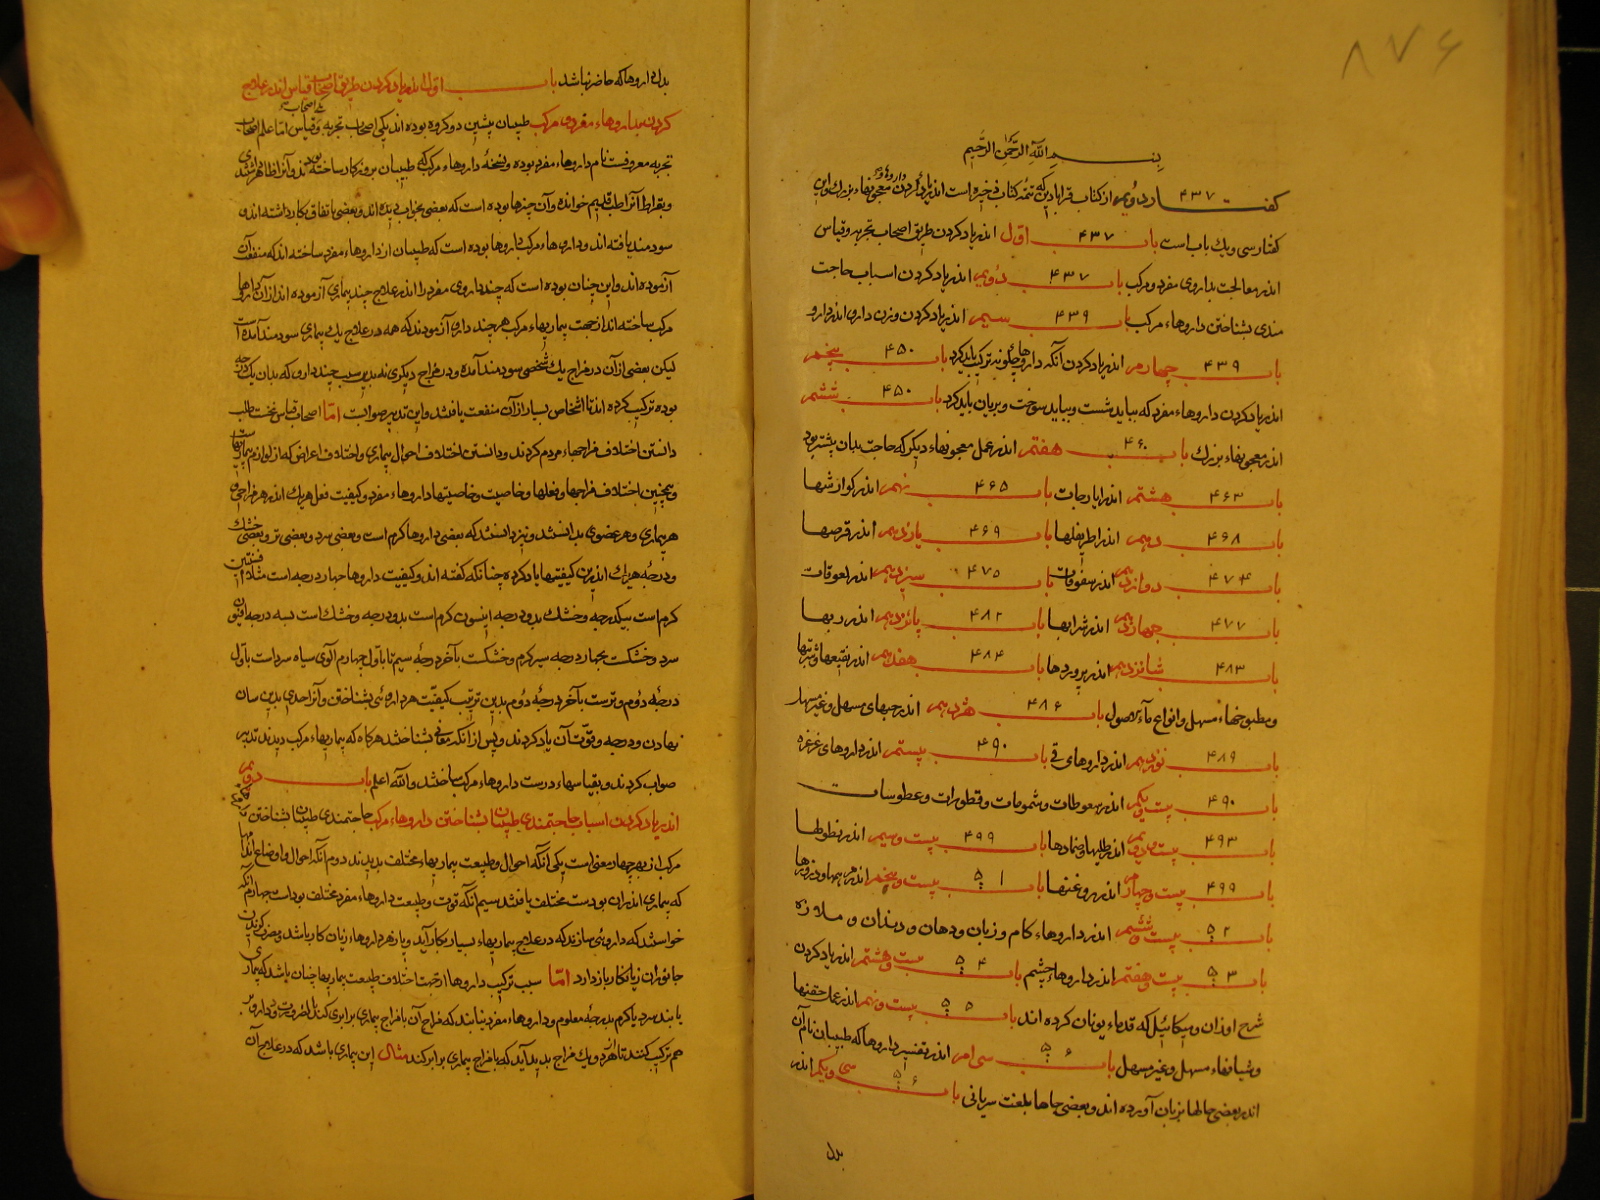 ۸۷۶
بسم الله الرحمن الرحیم
۴۳۷
کفتار دویم از کتاب قرابادین که تتمه کتاب ذخیره است اندر یاد کردن داروهاء معجونهاء بزرک و این
کفتار سی و یک باب است باب ۴۳۷ اول اندر یاد کردن طریق اصحاب تجربه و قیاس
اندر معالجت بداروی مفرد و مرکب باب ۴۳۷ دویم اندر یاد کردن اسباب حاجت
مندی بشناختن داروهاء مرکب باب ۴۳۹ سیم اندر یاد کردن وزن داروی اندر دارو
باب ۴۳۹ چهارم اندر یاد کردن آنکه داروها چکونه ترکیب باید کرد باب ۴۵۰ پنجم
اندر یاد کردن داروهاء مفرد که بباید شست و بباید سوخت و بریان باید کرد باب ۴۵۰ ششم
اندر معجونهاء بزرک باب ۴۶۰ هفتم اندر عمل معجونهاء دیکر که حاجت بدان بیشتر بود
باب ۴۶۳ هشتم اندر ایارجات باب ۴۶۵ نهم اندر کوارشها
باب ۴۶۸ دهم اندر اطریفلها باب ۴۶۹ یازدهم اندر قرصها
باب ۴۷۴ دوازدهم اندر سفوفات باب ۴۷۵ سیزدهم اندر لعوقات
باب ۴۷۷ چهاردهم اندر شرابها باب ۴۸۲ پانزدهم اندر ربها
باب ۴۸۳ شانزدهم اندر پروردها باب ۴۸۴ هفدهم اندر نقیعها و شربتها
و مطبوخهاء مسهل و انواع ماء الاصول باب ۴۸۶ هژدهم اندر حبهای مسهل و غیر مسهل
باب ۴۸۹ نوزدهم اندر داروهای قی باب ۴۹۰ بیستم اندر داروهای غرغره
باب ۴۹۰ بیست یکم اندر سعوطات و شمومات و قطورات و عطوسات
باب ۴۹۳ بیست و دویم اندر طلیها و ضمادها باب ۴۹۹ بیست و سیم اندر نطولها
باب ۴۹۹ بیست و چهارم اندر روغنها باب ۵۰۱ بیست و پنجم اندر مرهمها و ذرورها
باب ۵۰۲ بیست و ششم اندر داروهاء کام و زبان و دهان و دندان و ملازه
باب ۵۰۳ بیست و هفتم اندر داروهاء چشم باب ۵۰۴ بیست و هشتم اندر یاد کردن
شرح اوزان و مکائیل که قدماء یونان کرده اند باب ۵۰۵ بیست و نهم اندر عمل حقنها
و شیافهاء مسهل و غیر مسهل باب ۵۰۶ سی ام اندر تفسیر داروها که طبیبان نام آن
اندر بعضی جایها بزبان آورده اند و بعضی جاها بلغت سریانی باب ۵۰۶ سی و یکم اندر
بدل
بدل داروها که حاضر نباشد باب اول اندر یاد کردن طریق اصحاب قیاس اندر علاج
کردن بداروهاء مفرد و مرکب طبیبان پیشین دو کروه بوده اند یکی اصحاب تجربه و یکی اصحاب قیاس اما علم اصحاب
تجربه معرفت نام داروهاء مفرد بوده و نسخهٔ داروهاء مرکب که طبیبان بروزکار ساخته بودند و آنرا ظاهر داشتندی
و بقراط آنرا طب قدیم خوانده و آن چیزها بوده است که بعضی بخواب دیده اند و بعضی باتفاق بکار داشته اند و
سودمند یافته اند و داروهاء مرکب داروها بوده است که طبیبان از داروهاء مفرد ساخته اند که منفعت آن
آزموده اند و این چنان بوده است که چند داروی مفرد را اندر علاج چند بیماری آزموده اند از آن داروها
مرکب ساخته اند از جهت بیماریهاء مرکب هر چند داروی آزمودند که همه در علاج یک بیماری سودمند آمده است
لیکن بعضی از آن در مزاج یک شخصی سودمند آمده و در مزاج دیکری نه بدین سبب چند داروی که بدان یک درجه
بوده ترکیب کرده اند تا اشخاص بسیار از آن منفعت یافتند و این تدبیر صواب است اما اصحاب قیاس نخست طلب
دانستن اختلاف مزاجهاء مردم کردند و دانستن اختلاف احوال بیماری و اختلاف اعراض که از لوازم بیماریهاست
و همچنین اختلاف مزاجها و فعلها و خاصیت و خاصیتها داروهاء مفرد و کیفیت فعل هر یک اندر هر مزاجی و
هر بیماری و هر عضوی بدانستند و نیز دانستند که بعضی داروها کرم است و بعضی سرد و بعضی تر و بعضی خشک
و درجه هر یک اندرین کیفیتها یاد کرده چنانکه کفته اند و کیفیت داروها چهار درجه است مثلا افسنتین
کرم است بیکدرجه و خشک بدو درجه انیسون کرم است بدو درجه و خشک است بسه درجه افیون
سرد و خشکست بچهار درجه سیر کرم و خشکست بآخر درجه سیم تا باول چهارم آلوی سیاه سرد است باول
درجهٔ دوم و تر است بآخر درجهٔ دوم بدین ترتیب کیفیت هر داروئی بشناختن و آنرا حدی بدین سان
نهادن و درجه و قوت آن یاد کردند و پس از آنکه معانی بشناختند هر کاه که بیماریهاء مرکب دیدند تدبیر
صواب کردند و بقیاسهاء درست داروهاء مرکب ساختند و الله اعلم باب دویم
اندر یاد کردن اسباب حاجتمندی طبیبان بشناختن داروهاء مرکب حاجتمندی طبیبان بشناختن داروهاء
مرکب از بهر چهار معنی است یکی آنکه احوال و طبیعت بیماریهاء مختلف بدیدند دوم آنکه احوال و اوضاع اندامها
که بیماری اندران بودست مختلف یافتند سیم آنکه قوت و طبیعت داروهاء مفرد مختلف بود است چهارم آنکه
خواستند که داروئی سازند که در علاج بیماریهاء بسیار بکار آید و پازهر داروهاء زیان کار باشد و مضرت کزیدن
جانوران زیانکار باز دارد اما سبب ترکیب داروها از جهت اختلاف طبیعت بیماریها چنان باشد که بیماری
یابند سرد یا کرم بدرجهٔ معلوم و داروهاء مفرد نیابند که مزاج آن با مزاج بیماری برابری کند بالضرورت دو دارو بر
هم ترکیب کنند تا از هر دو یک مزاج پدید آید که با مزاج بیماری برابر کند مثال این بیماری باشد که در علاج آن